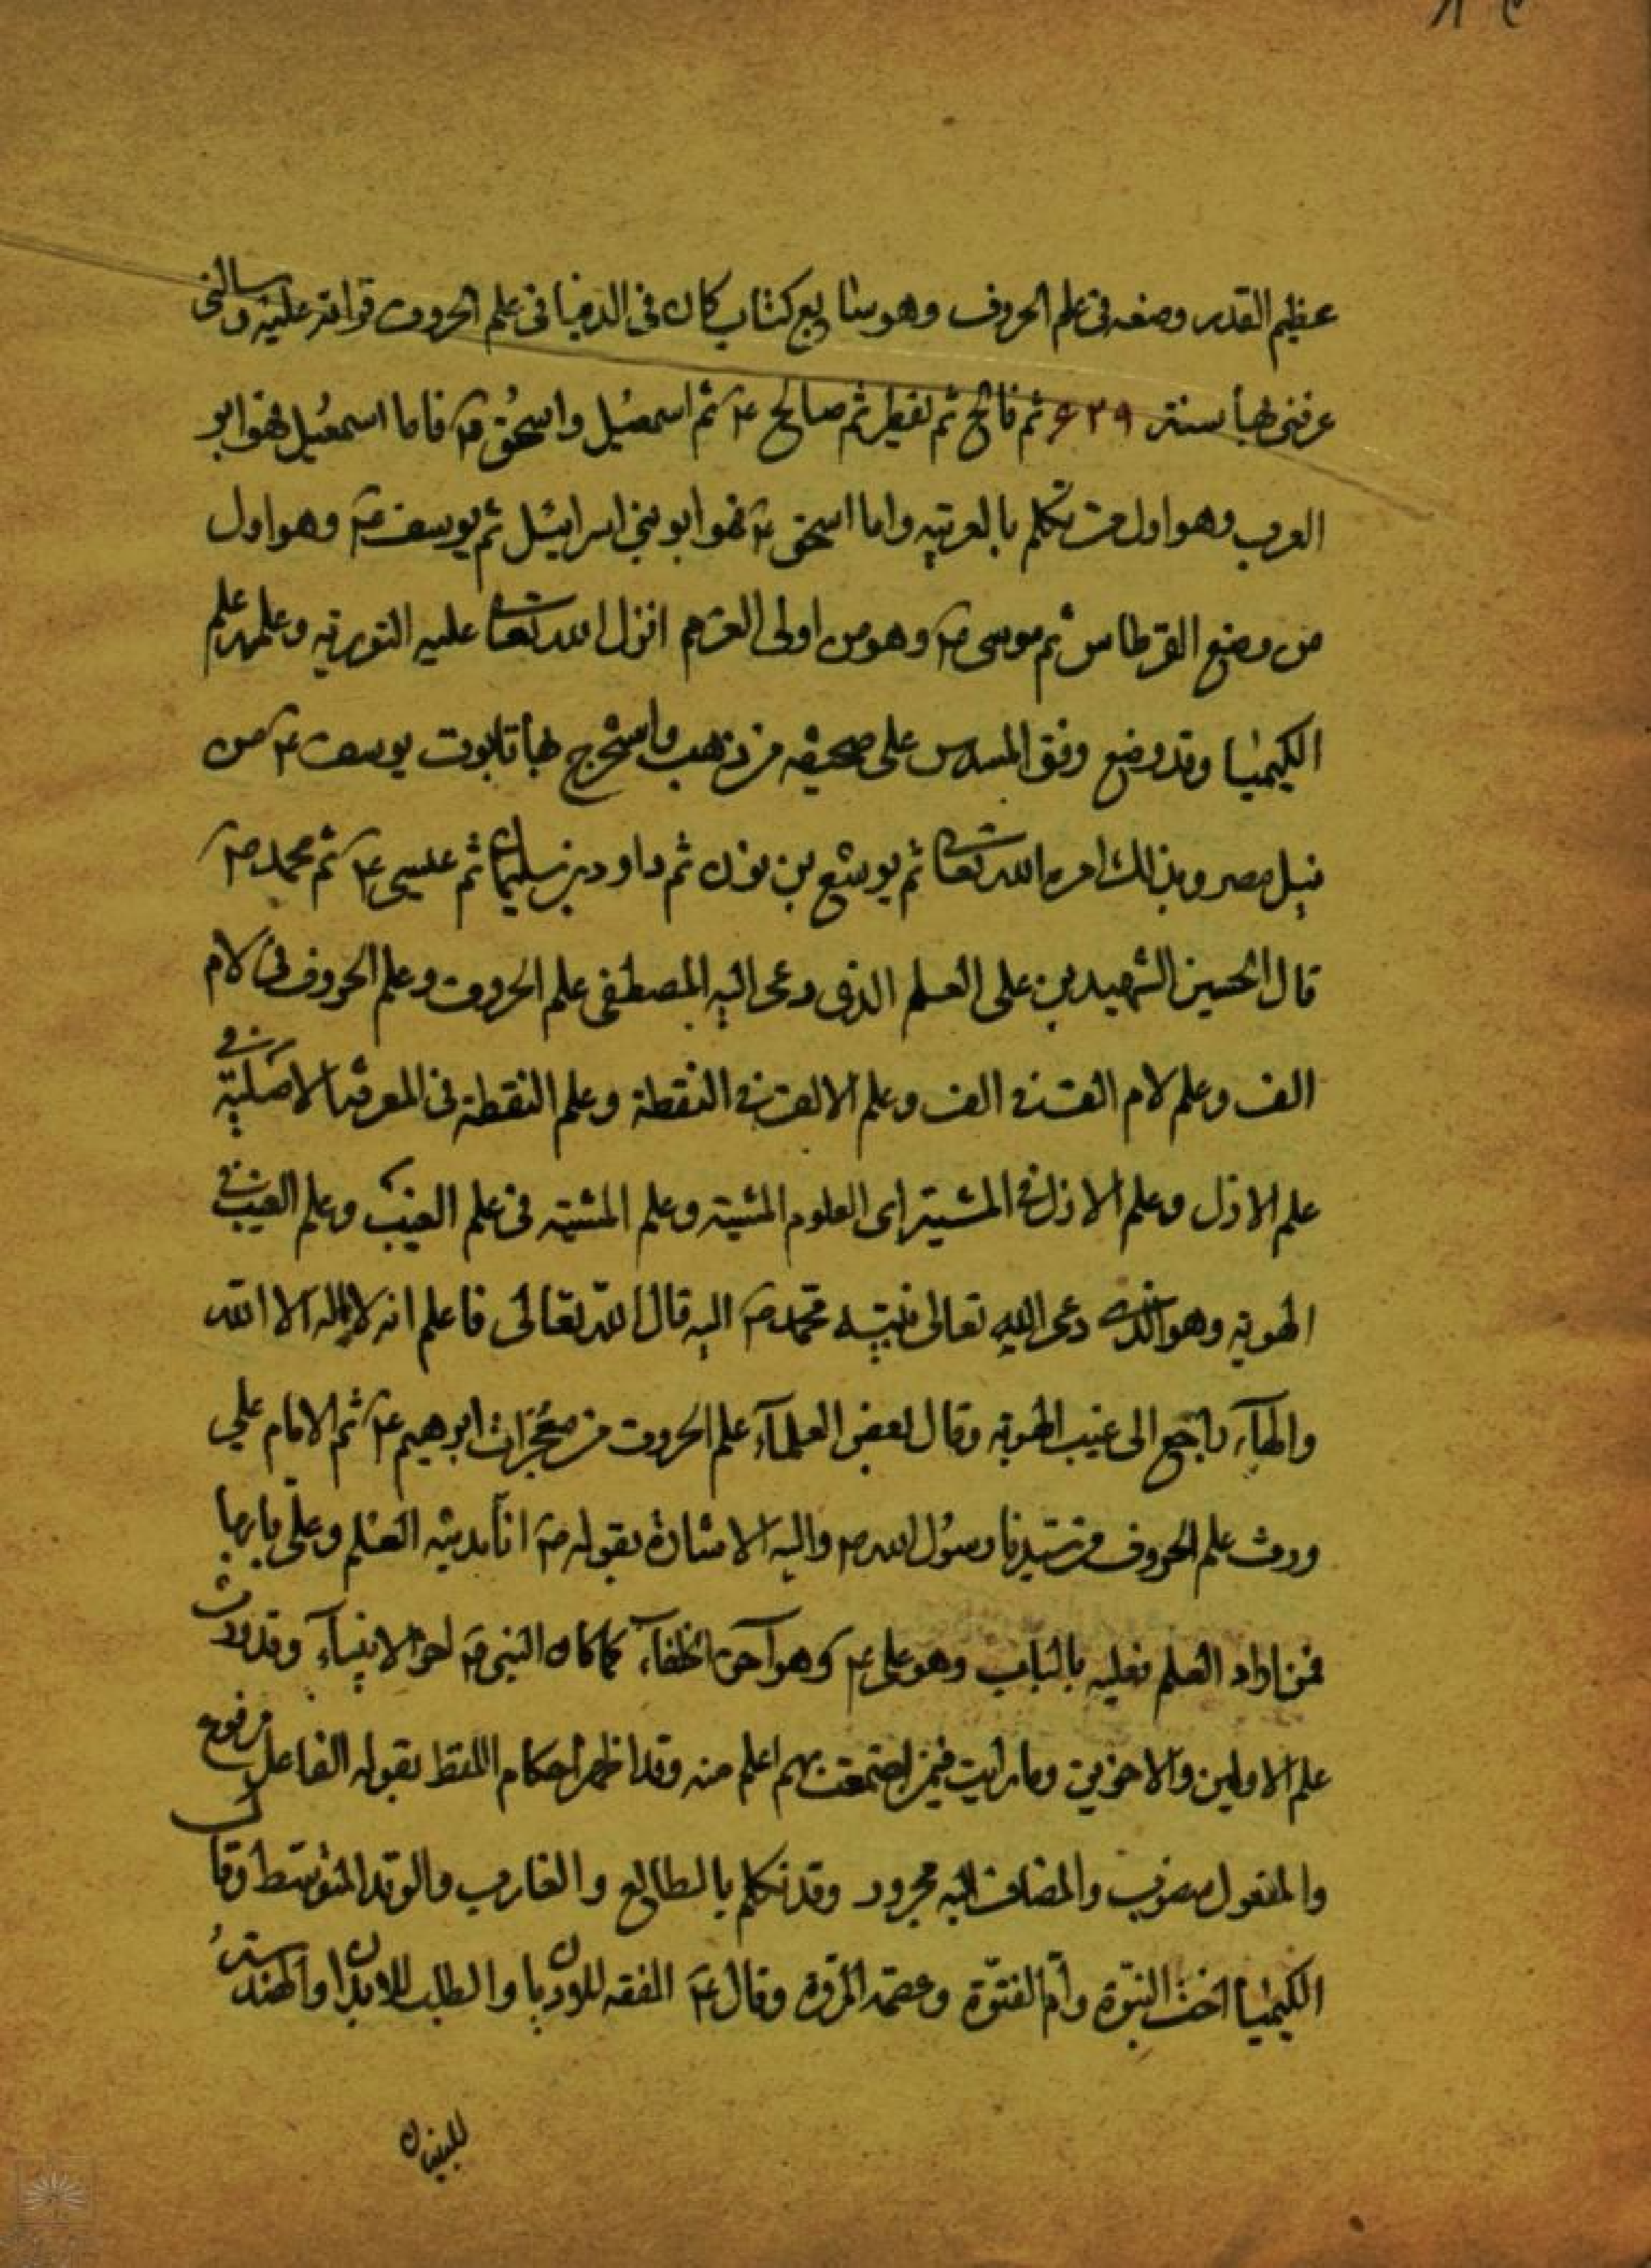 عظيم القدر وصفه فى علم الحروف وهو سابع كتاب كان فى الدنيا فى علم الحروف قراته عليه وسالنى
عرفنى بها سنة ۶۲۹ ثم فالخ ثم ثم صالح ع ثم اسمعيل واسحق ع فاما اسمعيل فهو ابو
العرب وهو اول من تكلم بالعربيه واما اسحق ع فهو ابو بنى اسرائيل ثم يوسف ع وهو اول
من وضع القرطاس ثم موسى ع وهو من اولى العزم انزل الله تعا عليه التوريه وعلمه علم
الكيميا وقد وضع وفق المسدس على صحيفه من ذهب واستخرج بها تابوت يوسف ع من
نيل مصر وبذلك امره الله تعا ثم يوشع بن نون ثم داود ثم عيسى ع ثم محمد ص
قال الحسين الشهيد بن على العلم الذى دعى اليه المصطفى علم الحروف وعلم الحروف فى لام
الف وعلم لام الف فى الف وعلم الالف فى النقطة وعلم النقطة فى المعرفة الاصلية فى
علم الازل وعلم الازل فى المشية اى العلوم المشية وعلم المشية فى علم الغيب وعلم الغيب فى
الهويه وهو الذى دعى الله تعالى نبيه محمد ص اليه قال الله تعالى فاعلم انه لا اله الا الله
والهآء راجع الى غيب الهويه وقال بعض العلمآء علم الحروف من معجزات ابرهيم ع ثم الامام على
ورث علم الحروف من سيدنا رسول الله ص واليه الاشارة بقوله ص انا مدينه العلم وعلى بابها
فمن اراد العلم فعليه بالباب وهو على ع وهو آخر الخلفآء كما كان النبى ص اخر الانبيآء وقد ورث
علم الاولين والاخرين وما رايت فيمن اجتمعت بهم اعلم منه وقد اظهر احكام اللفظ بقوله الفاعل مرفوع
والمفعول منصوب والمضاف اليه مجرور وقد تكلم بالطالع والغارب والوتد المتوسط وقال
الكيميا اخت النبوّة وامّ الفتوّة وعصمة المروة وقال ع الفقه للاديان والطب للابدان والهندسة
للبنيان